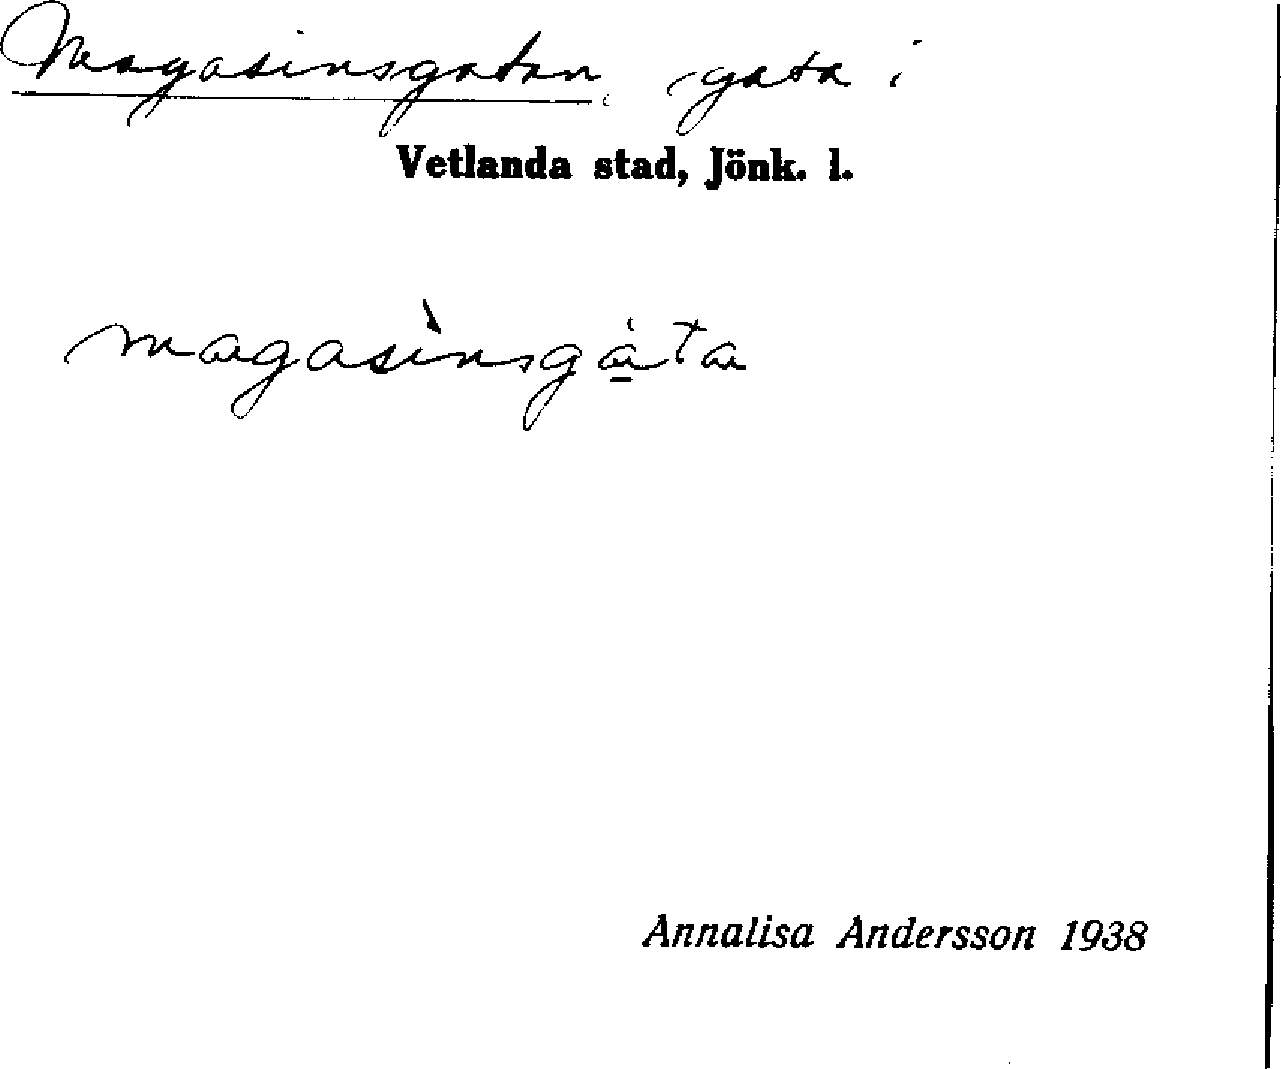 Magasinsgatan, gata i
Vetlanda stad, Jönk. l.
magasìnsgá̱ta
Annalisa Andersson 1938